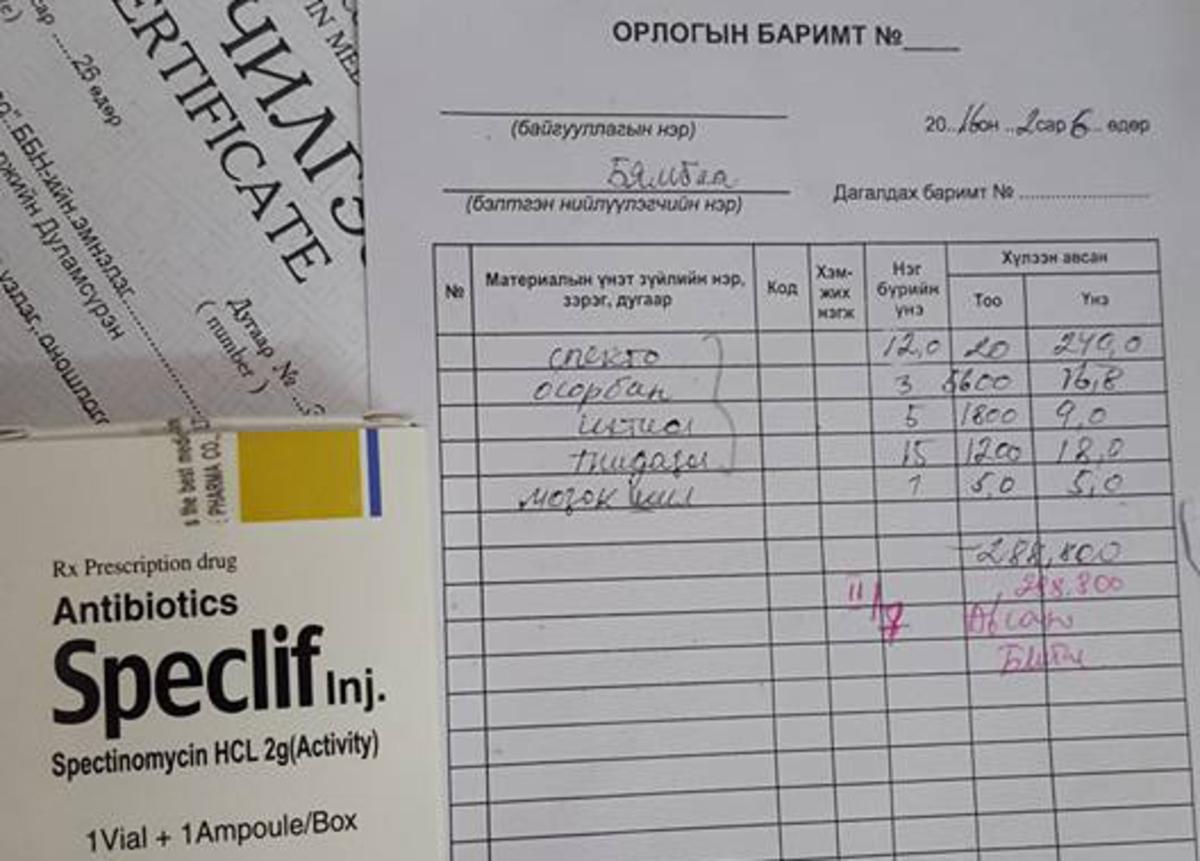 ОРЛОГЫН БАРИМТ №____
(байгууллагын нэр)
20..16он ..2сар 6.. өдөр
Бямбаа
(бэлтгэн нийлүүлэгчийн нэр)
Дагалдах баримт № ........................
№ Материалын үнэт зүйлийн нэр, зэрэг, дугаар Код Хэм-жих нэгж Нэг бүрийн үнэ Хүлээн авсан
Тоо Үнэ
спекто 12,0 20 240,0
осорбан 3 5600 16,8
ихтиол 5 1800 9,0
15 1200 18,0
мозок шил 1 5,0 5,0
288,800
288.800
Авсан
ЧИЛГЭ
ERTIFICATE
IN MEE
сар ......26 өдөр
ББН-ийн.эмнэлэг
жийн Дуламсүрэн
үздэг, оношлог
Дугаар №
( number )
s the best medi
PHARMA CO.,
Rx Prescription drug
Antibiotics
Speclif Inj.
Spectinomycin HCL 2g(Activity)
1Vial + 1Ampoule/Box